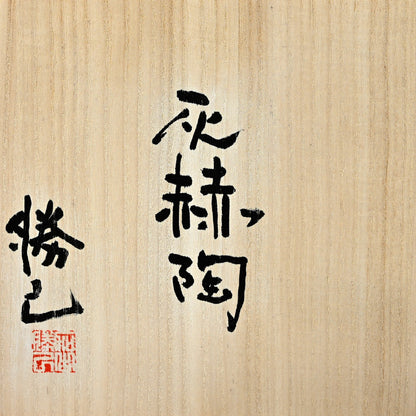 灰赫陶
勝己